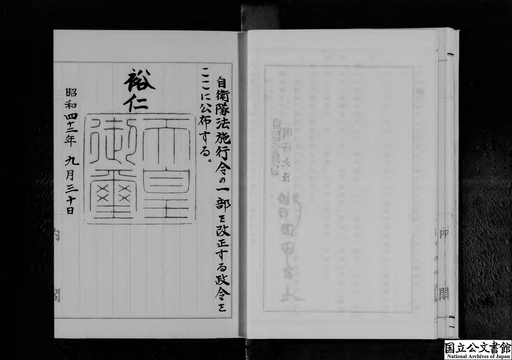 自衛隊法施行令の一部を改正する政令を
ここに公布する。
裕仁
天皇
御璽
昭和四十三年九月三十日
内閣
内閣
国立公文書館
National Archives of Japan